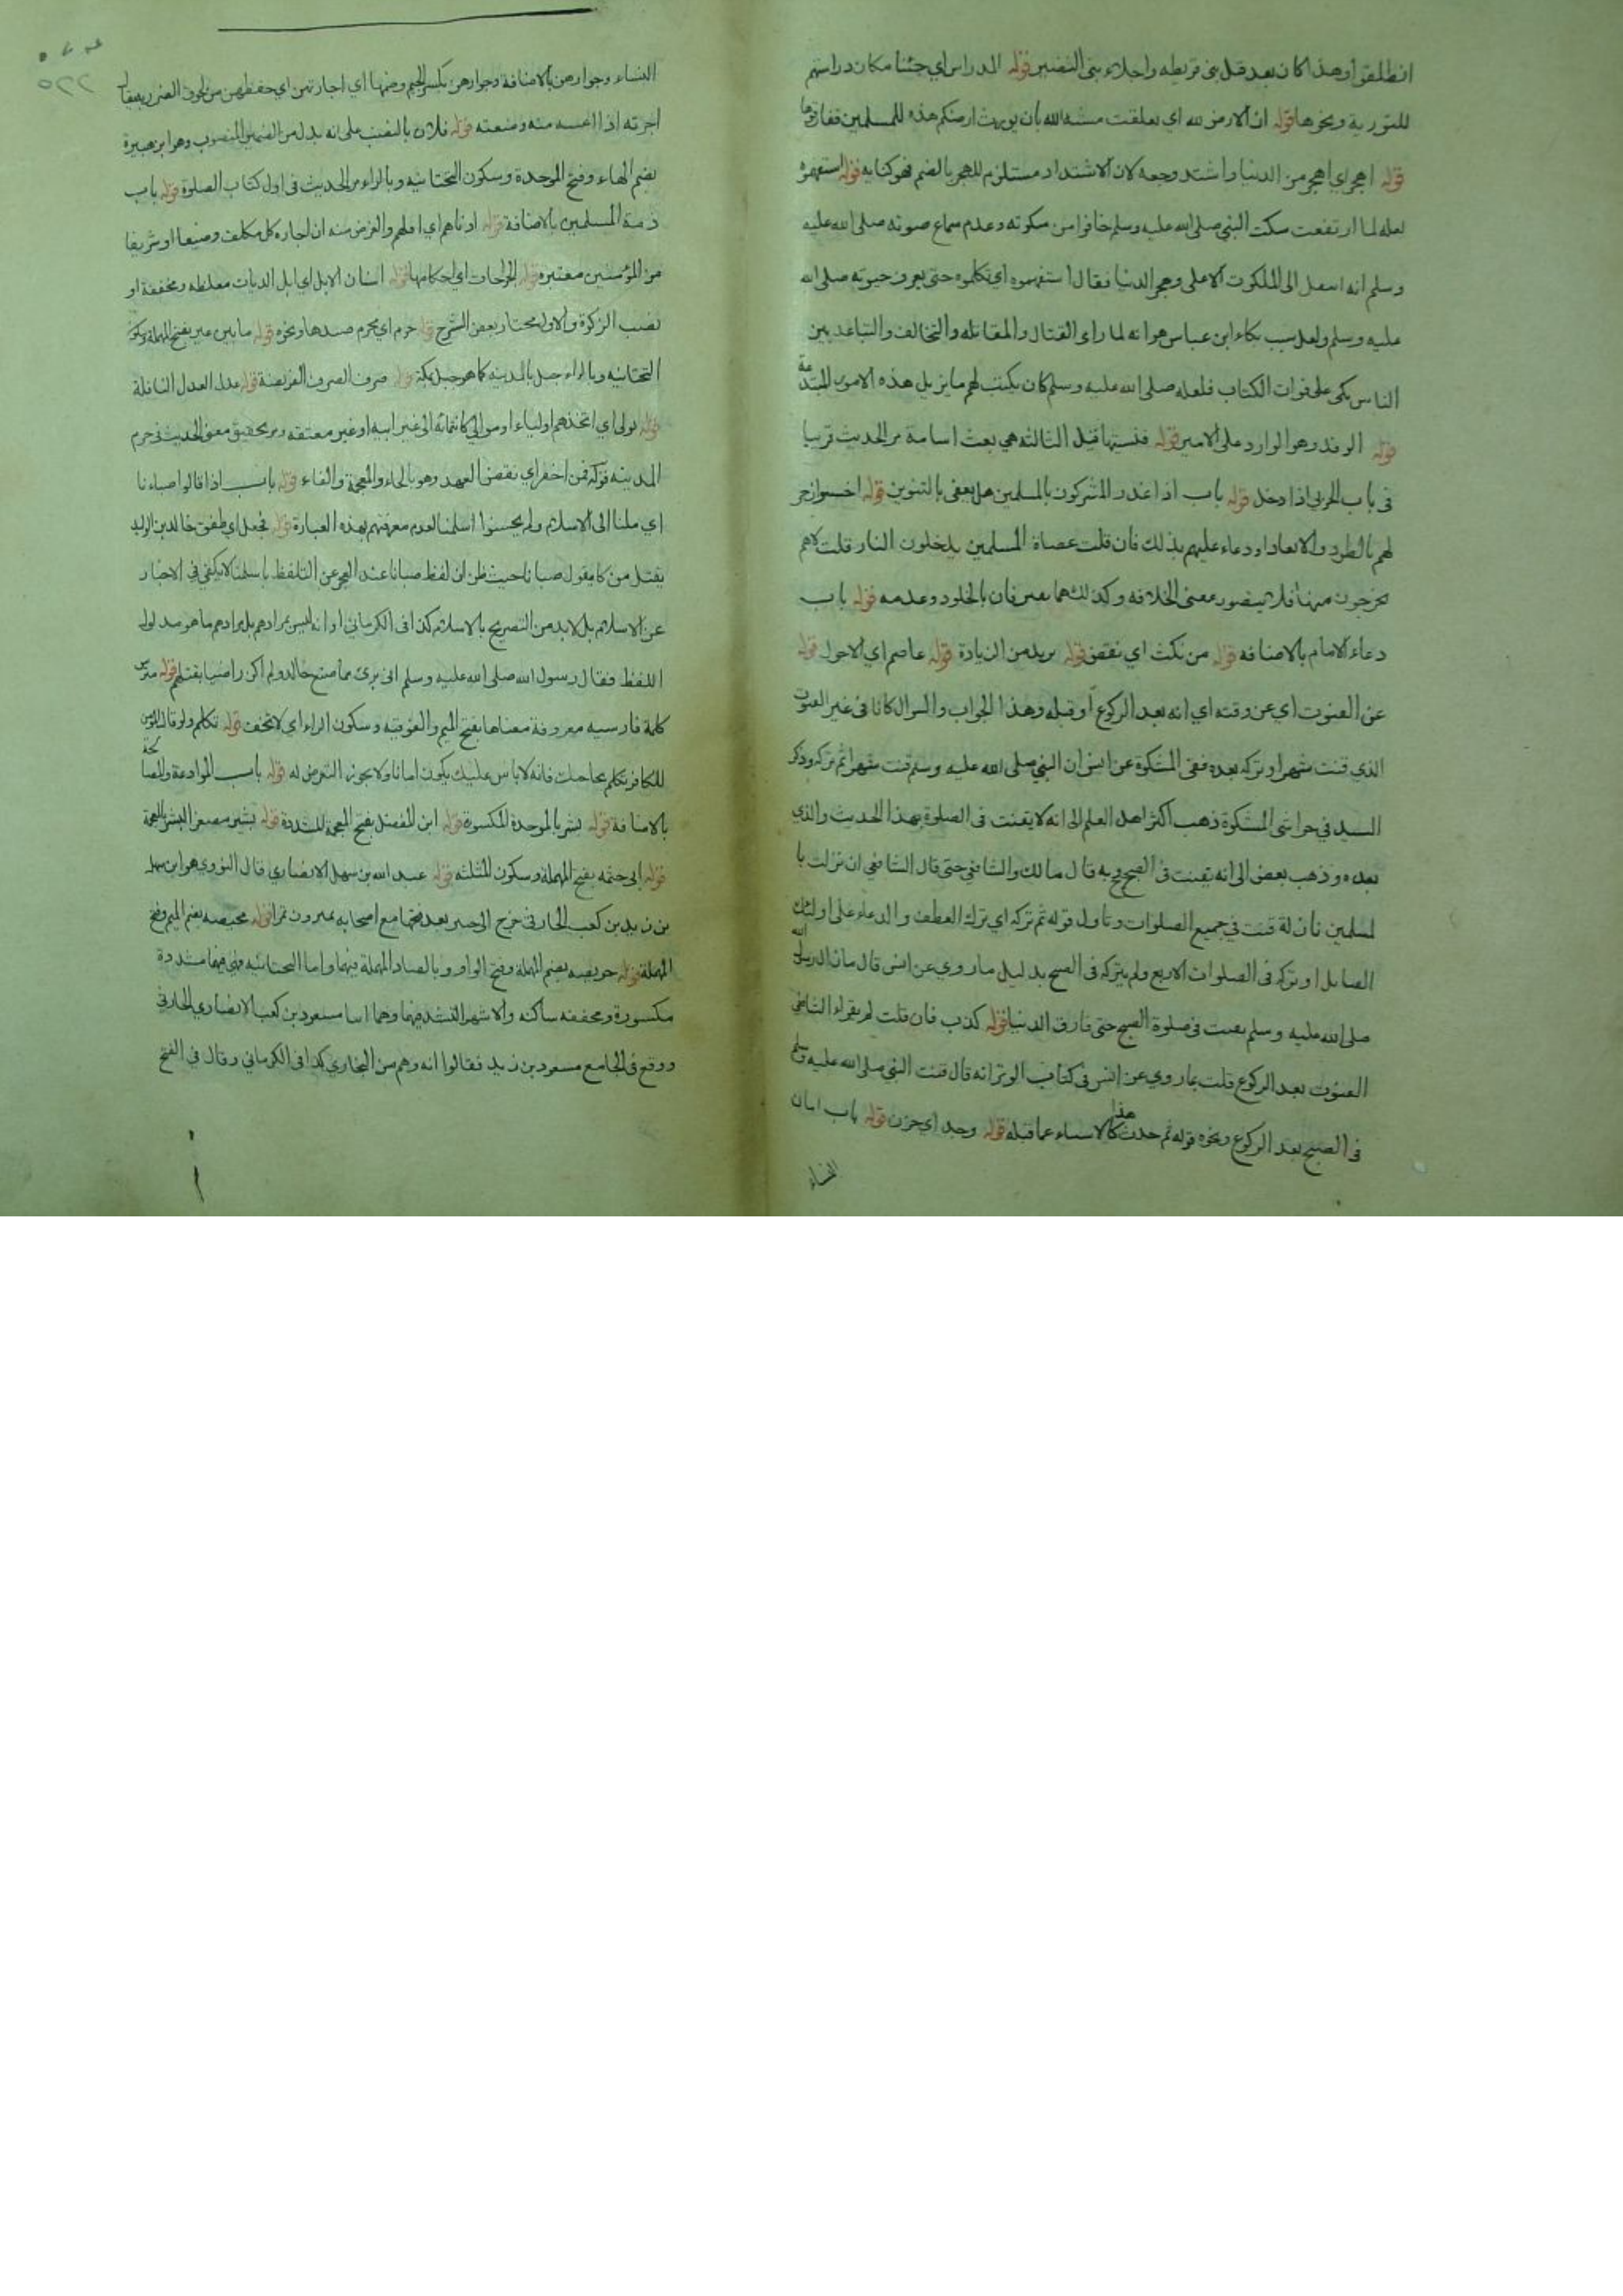 انطلقوا وهذا كان بعد قتل بني قريظه واجلاء بني النضير قوله المدراس اي جئنا مكان دراستهم
للتورية ونحوها قوله ان الارض لله اي تعلقت مشية الله بان يورث ارضكم هذه للمسلمين ففارقوها
قوله اهجر اي اهجر من الدنيا واشتد وجعه لان الاشتداد مستلزم للهجر بالضم فهو كناية قوله استفهموه
لعله لما ارتفعت سكت النبي صلى الله عليه وسلم خافوا من سكوته وعدم سماع صوته صلى الله عليه
وسلم انه استقل الى الملكوت الاعلى وهجر الدنيا فقال استفهموه اي تكلموه حتى يعرف حيوته صلى الله
عليه وسلم ولعل سبب بكاء ابن عباس هو انه لما راى القتال والمقاتله والتخالف والتباعد بين
الناس بكى على فوات الكتاب فلعله صلى الله عليه وسلم كان يكتب لهم ما يزيل هذه الامور المبتدعة
قوله الوفد وهو الوارد على الامير قوله فنسيتها قيل الثالثه هي بعث اسامة مر الحديث قريبا
في باب الحربي اذا دخل قوله باب اذا غدر المشركون بالمسلمين هل يعفى بالتنوين قوله اخسؤا زجر
لهم بالطرد والابعاد او دعاء عليهم بذلك فان قلت عصاة المسلمين يدخلون النار قلت لا هم
يخرجون منها فلا يتصور معنى الخلافه وكذلك هما يفترقان بالخلود وعدمه قوله باب
دعاء الامام بالاضافه قوله من نكث اي نقض قوله يزيد من الزيادة قوله عاصم اي الاحول قوله
عن القنوت اي عن وقته اي انه بعد الركوع او قبله وهذا الجواب والسوال كانا في غير القنوت
الذي قنت شهرا وتركه بعده ففي المشكوة عن انس ان النبي صلى الله عليه وسلم قنت شهرا ثم تركه وذكر
السيد في حواشي المشكوة ذهب اكثر اهل العلم الى انه لا يقنت في الصلوة بهذا الحديث والذي
بعده وذهب بعض الى انه يقنت في الصبح وبه قال مالك والشافعي حتى قال الشافعي ان نزلت با
لمسلمين نازلة قنت في جميع الصلوات وتاول قوله ثم تركه اي ترك اللعن والدعاء على اولئك
القبايل او تركه في الصلوات الاربع ولم يتركه في الصبح بدليل ما روي عن انس قال ما زال رسول الله
صلى الله عليه وسلم يقنت في صلوة الصبح حتى فارق الدنيا قوله كذب فان قلت لم يقول الشافعي
القنوت بعد الركوع قلت بما روي عن انس في كتاب الوتر انه قال قنت النبي صلى الله عليه وسلم
في الصبح بعد الركوع ونحوه قوله ثم حدث هذا كالاستيناء عما قبله قوله وجد اي حزن قوله باب امان
النساء
النساء وجوارهن بالاضافة وجوارهن بكسر الجيم وضمها اي اجارتهن اي حفظهن من لحوق الضرر يقال
اجرته اذا منه ومنعته قوله فلان بالنصب على انه بدل من الضمير المنصوب وهو ابن هبيرة
بضم الهاء وفتح الموحدة وسكون التحتانيه وبالراء مر الحديث في اول كتاب الصلوة قوله باب
ذمة المسلمين بالاضافة قوله ادناهم اي اقلهم والغرض منه ان اجارة كل مكلف وضيعا او شريفا
من المؤمنين معتبره قوله الجراحات اي احكامها قوله اسنان الابل اي ابل الديات مغلظه ومخففة او
نصب الزكوة والاول مختار بعض الشرح قوله حرم اي يحرم صيدها ونحوه قوله ما بين عير بفتح المهملة وسكون
التحتانيه وبالراء جبل بالمدينه كما هو جبل بمكة قوله صرف الصرف الفريضة قوله عدل العدل النافلة
قوله تولى اي اتخذهم اولياء او موالي كانتمائه الى غير ابيه او غير معتقه ومر تحقيق معنى الحديث في حرم
المدينه قوله فمن اخفر اي نقض العهد وهو بالخاء والمعجمة والفاء قوله باب اذا قالوا صبانا
اي ملنا الى الاسلام ولم يحسنوا اسلمنا لعدم معرفتهم بهذه العبارة قوله فجعل اي طفق خالد بن الوليد
يقتل من كان يقول صبانا حيث ظن ان لفظ صبانا عند العجز عن التلفظ باسلمنا لا يكفي في الاخبار
عن الاسلام بل لا بد من التصريح بالاسلام كذا في الكرماني او انه ليس مرادهم بل مرادهم ما هو مدلول
اللفظ فقال رسول الله صلى الله عليه وسلم اني برئ مما صنع خالد ولم اكن راضيا بقتلهم قوله مترس
كلمة فارسيه معروفة معناها بفتح الميم والفوقيه وسكون الراء اي لا تخف قوله تكلم ولو قال المؤمن
للكافر تكلم بحاجتك فانه لا باس عليك يكون امانا ولا يجوز التعرض له قوله باب الموادعة والمصالحة
بالاضافة قوله بشر بالموحدة المكسورة قوله ابن المفضل بفتح المعجمة المشددة قوله بشير مصغر البشر بالمعجمة
قوله ابي حثمه بفتح المهملة وسكون المثلثه قوله عبد الله بن سهل الانصاري قال النووي هو ابن سهل
بن زيد بن كعب الحارثي خرج الى خيبر بعد فتحها مع اصحابه يمترون تمرا قوله محيصه بضم الميم وفتح
المهملة قوله حويصه بضم المهملة وفتح الواو وبالصاد المهملة فيهما واما التحتانيه فهي فيهما مشددة
مكسورة ومخففه ساكنه والاشهر التشديد فيهما وهما ابنا مسعود بن كعب الانصاري الحارثي
ووقع في الجامع مسعود بن زيد فقالوا انه وهم من البخاري كذا في الكرماني وقال في الفتح